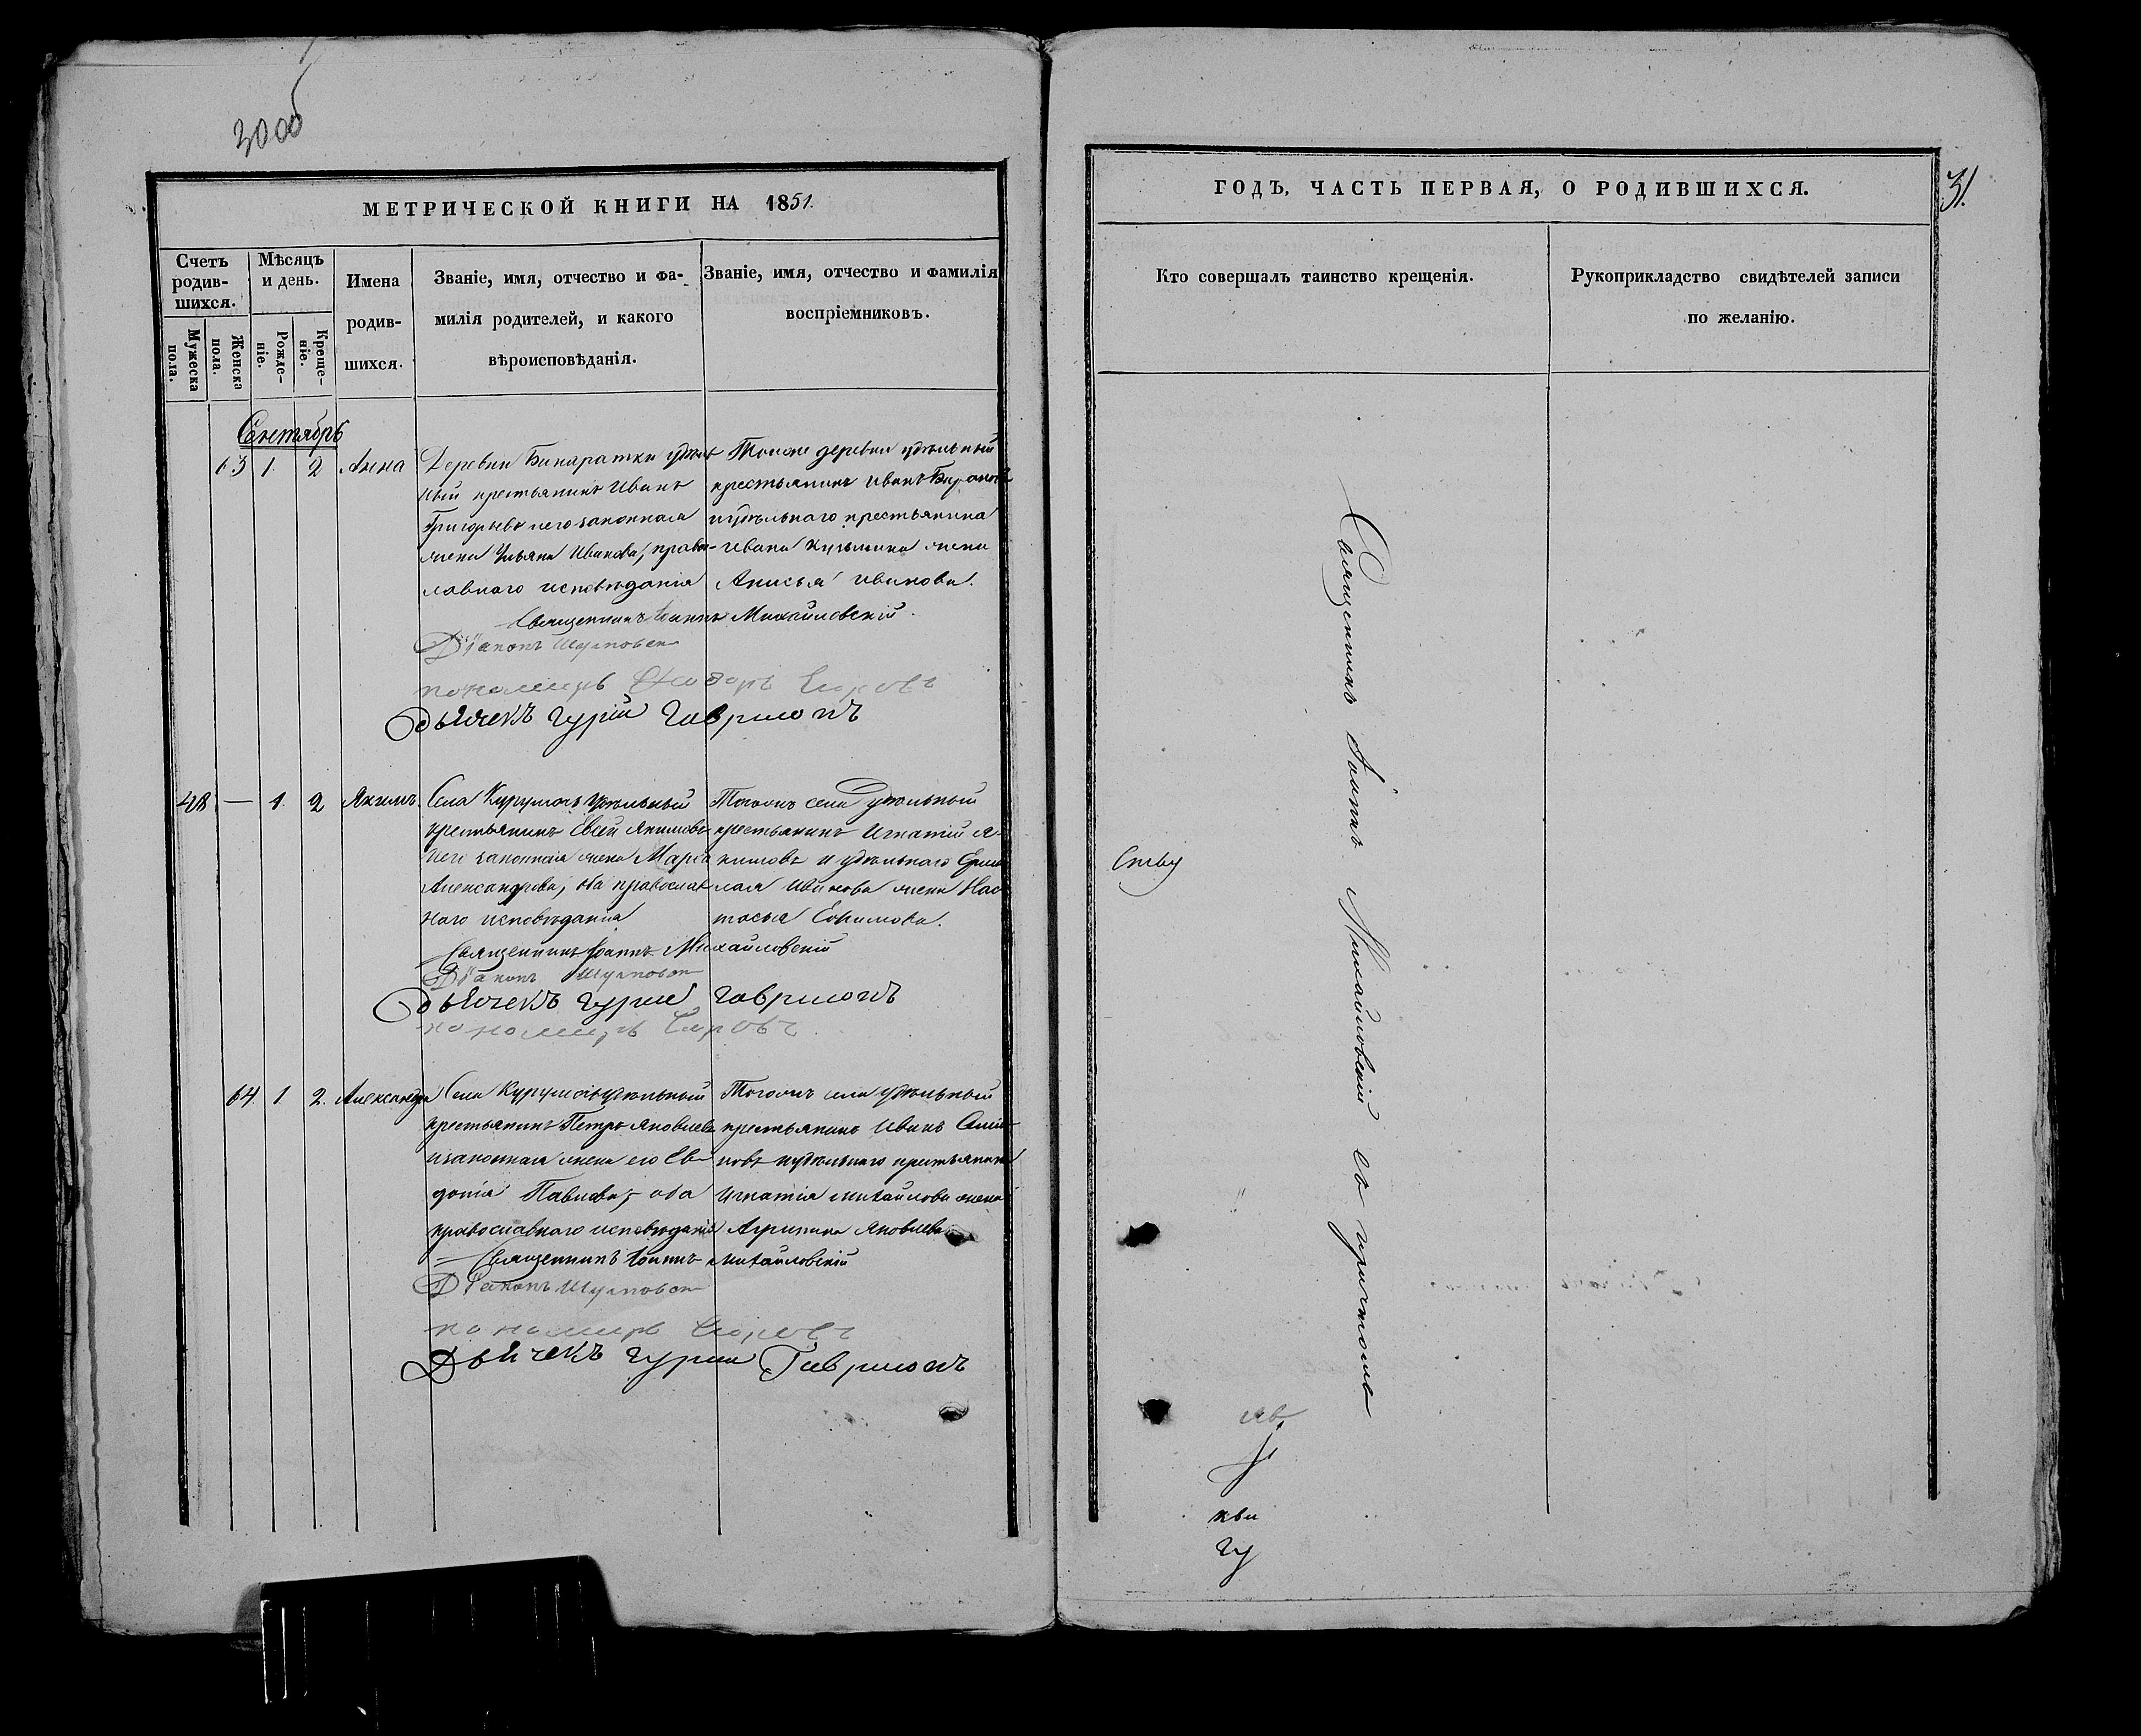 3000
МЕТРИЧЕСКОЙ КНИГИ НА 1851.
Счетъ родив-шихся.
Мужеска пола.
Женска пола.
Мѣсяцъ и день.
Рожде-ніе.
Креще-ніе.
Имена родив-шихся.
Званіе, имя, отчество и фа-
милія родителей, и какого
вѣроисповѣданія.
Званіе, имя, отчество и фамилія
воспріемниковъ.
Сентябрь
63 1. 2 Анна
Деревни удѣль
ный крестьянинъ Иванъ
Григорьевъ и его законная
жена Ульяна Иванова, правос-
лавнаго исповѣданія
Тойже деревни удѣльный
крестьянинъ Иванъ
и удѣльнаго крестьянина
Ивана Кузьмина жена
Анисья Иванова.
Священникъ Іоаннъ Михайловскій.
Діаконъ
пономарь Егоровъ
дьячекъ Гурій Гавриловъ
48 — 1. 2 Якимъ.
Села Курумочь удѣльный
крестьянинъ Евсей Якимовъ
и его законная жена Марѳа
Александрова, оба православ
наго исповѣданія
Тогожъ села удѣльный
крестьянинъ Игнатій Я-
кимовъ и удѣльнаго Ерми
лая Иванова жена Нас
тасья Ефимова.
Священникъ Іоаннъ Михайловскій
Діаконъ
дьячекъ Гурій Гавриловъ
пономарь Егоровъ
64. 1 2. Александра
Села Курумочь удѣльный
крестьянинъ Петръ Яковлевъ
и законная жена его Ев-
докія Павлова, оба
православнаго исповѣданія
Тогожъ села удѣльный
крестьянинъ Иванъ
новъ и удѣльнаго крестьянина
Игнатія Михайлова жена
Агрипина Яковлева.
Священникъ Іоаннъ Михайловскій
Діаконъ
пономарь Егоровъ
Дьячекъ Гурій Гавриловъ
ГОДЪ, ЧАСТЬ ПЕРВАЯ, О РОДИВШИХСЯ.
31.
Кто совершалъ таинство крещенія.
Рукоприкладство свидѣтелей записи
по желанію.
Священникъ Іоаннъ Михайловскій съ причтомъ